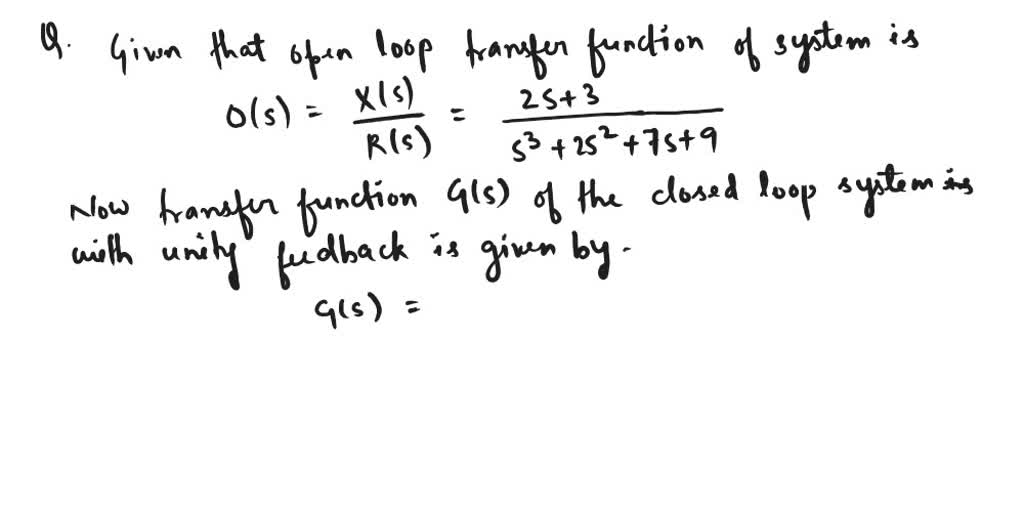 Q. Given that open loop transfer function of system is
O(s) = X(s)/R(s) = 2s+3/s³+2s²+7s+9
Now transfer function G(s) of the closed loop system is
with unity feedback is given by.
G(s) =